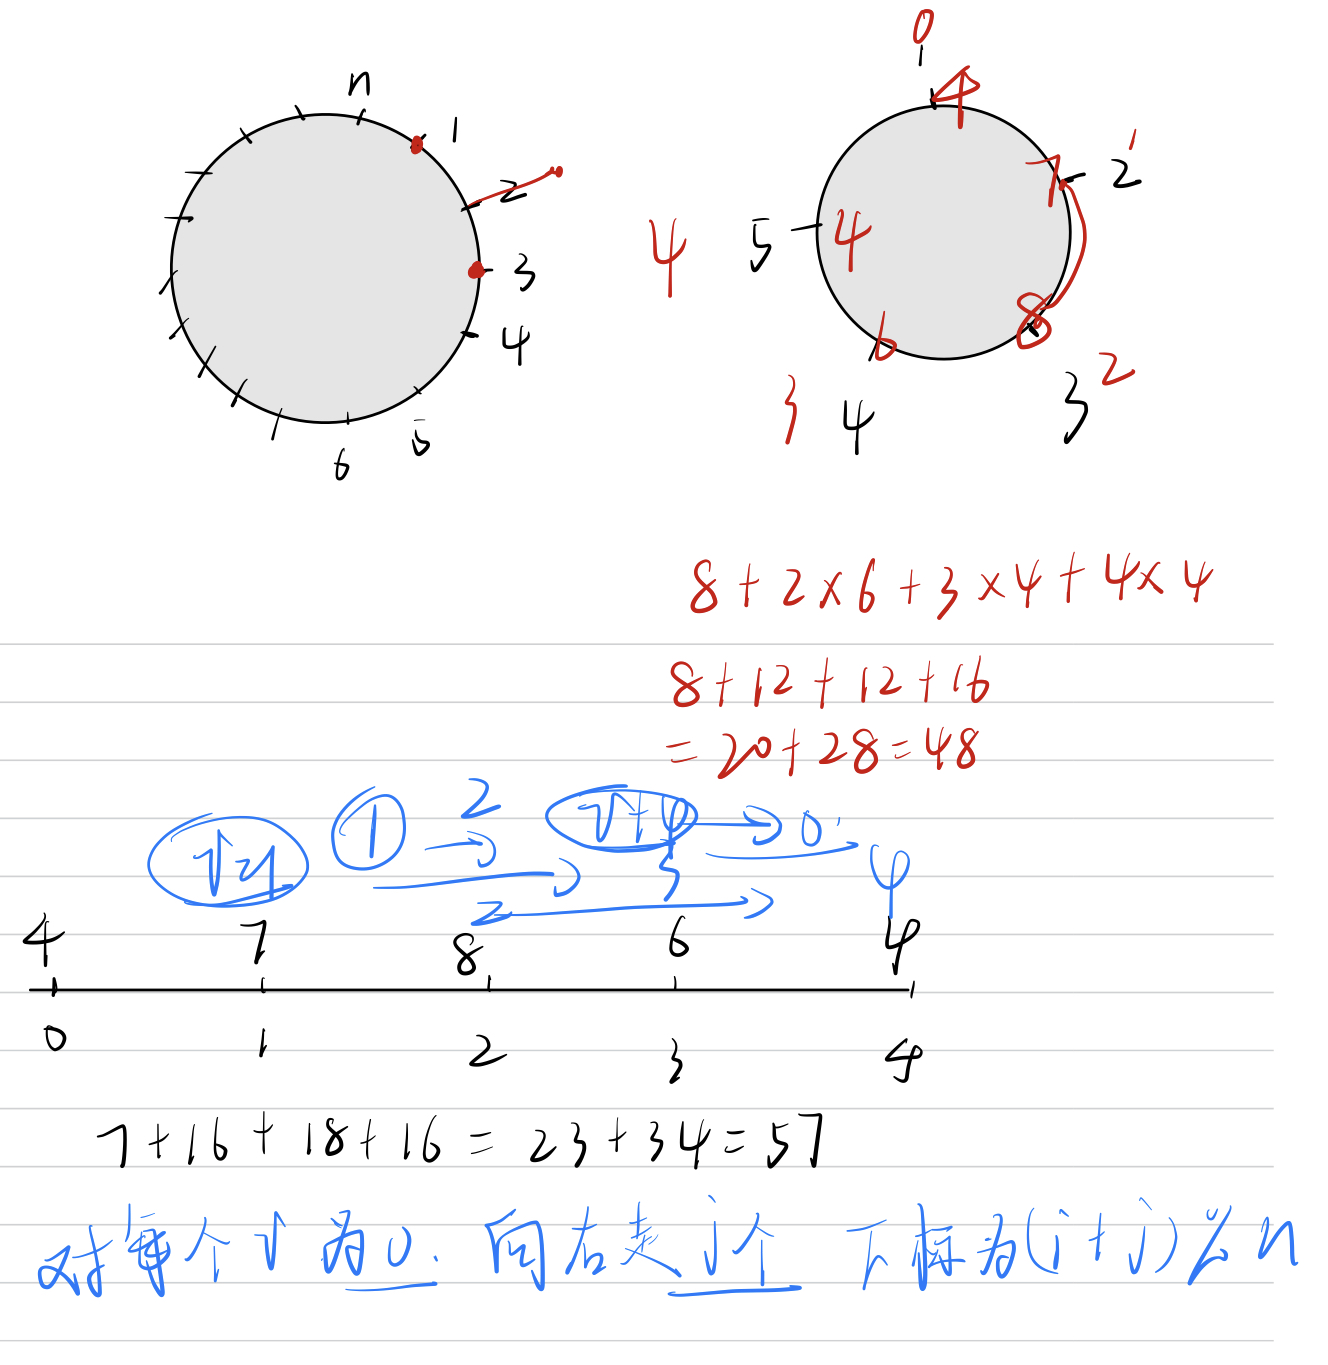 n 1 2 3 4 5 6
0 1 4
7 2 1
8 3 2
6 4 3
4 5 4
8+2×6+3×4+4×4
8+12+12+16
=20+28=48
1 2 0
2 3
4 7 8 6 4
0 1 2 3 4
7+16+18+16=23+34=57
对每个i为0. 向右走j个 下标为(i+j)%n